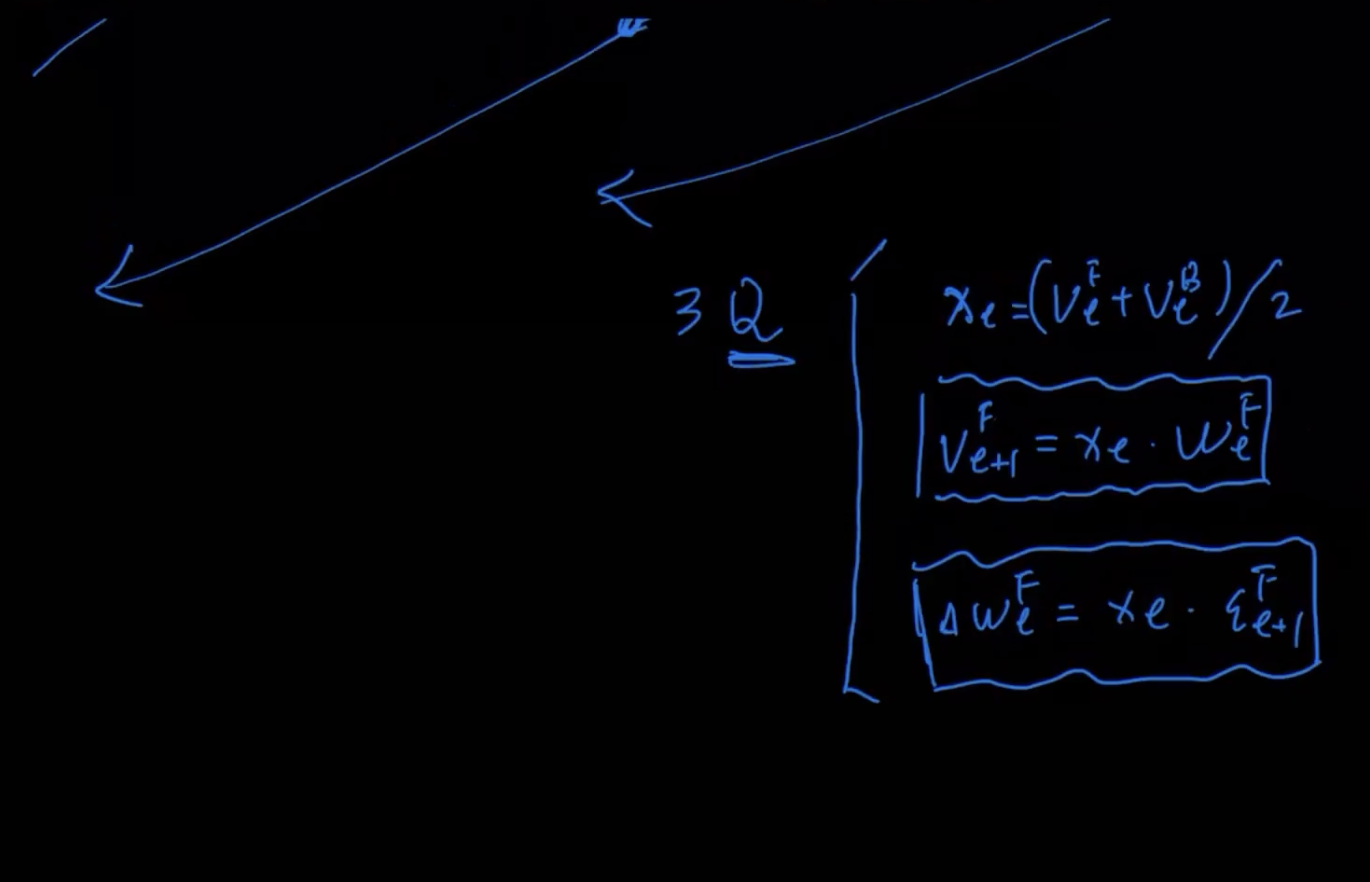 3 Q
xₑ=(Vₑᶠ+Vₑᴮ)/2
Vₑ₊₁ᶠ = xₑ · Wₑᶠ
Δwₑᶠ = xₑ · εₑ₊₁ᶠ